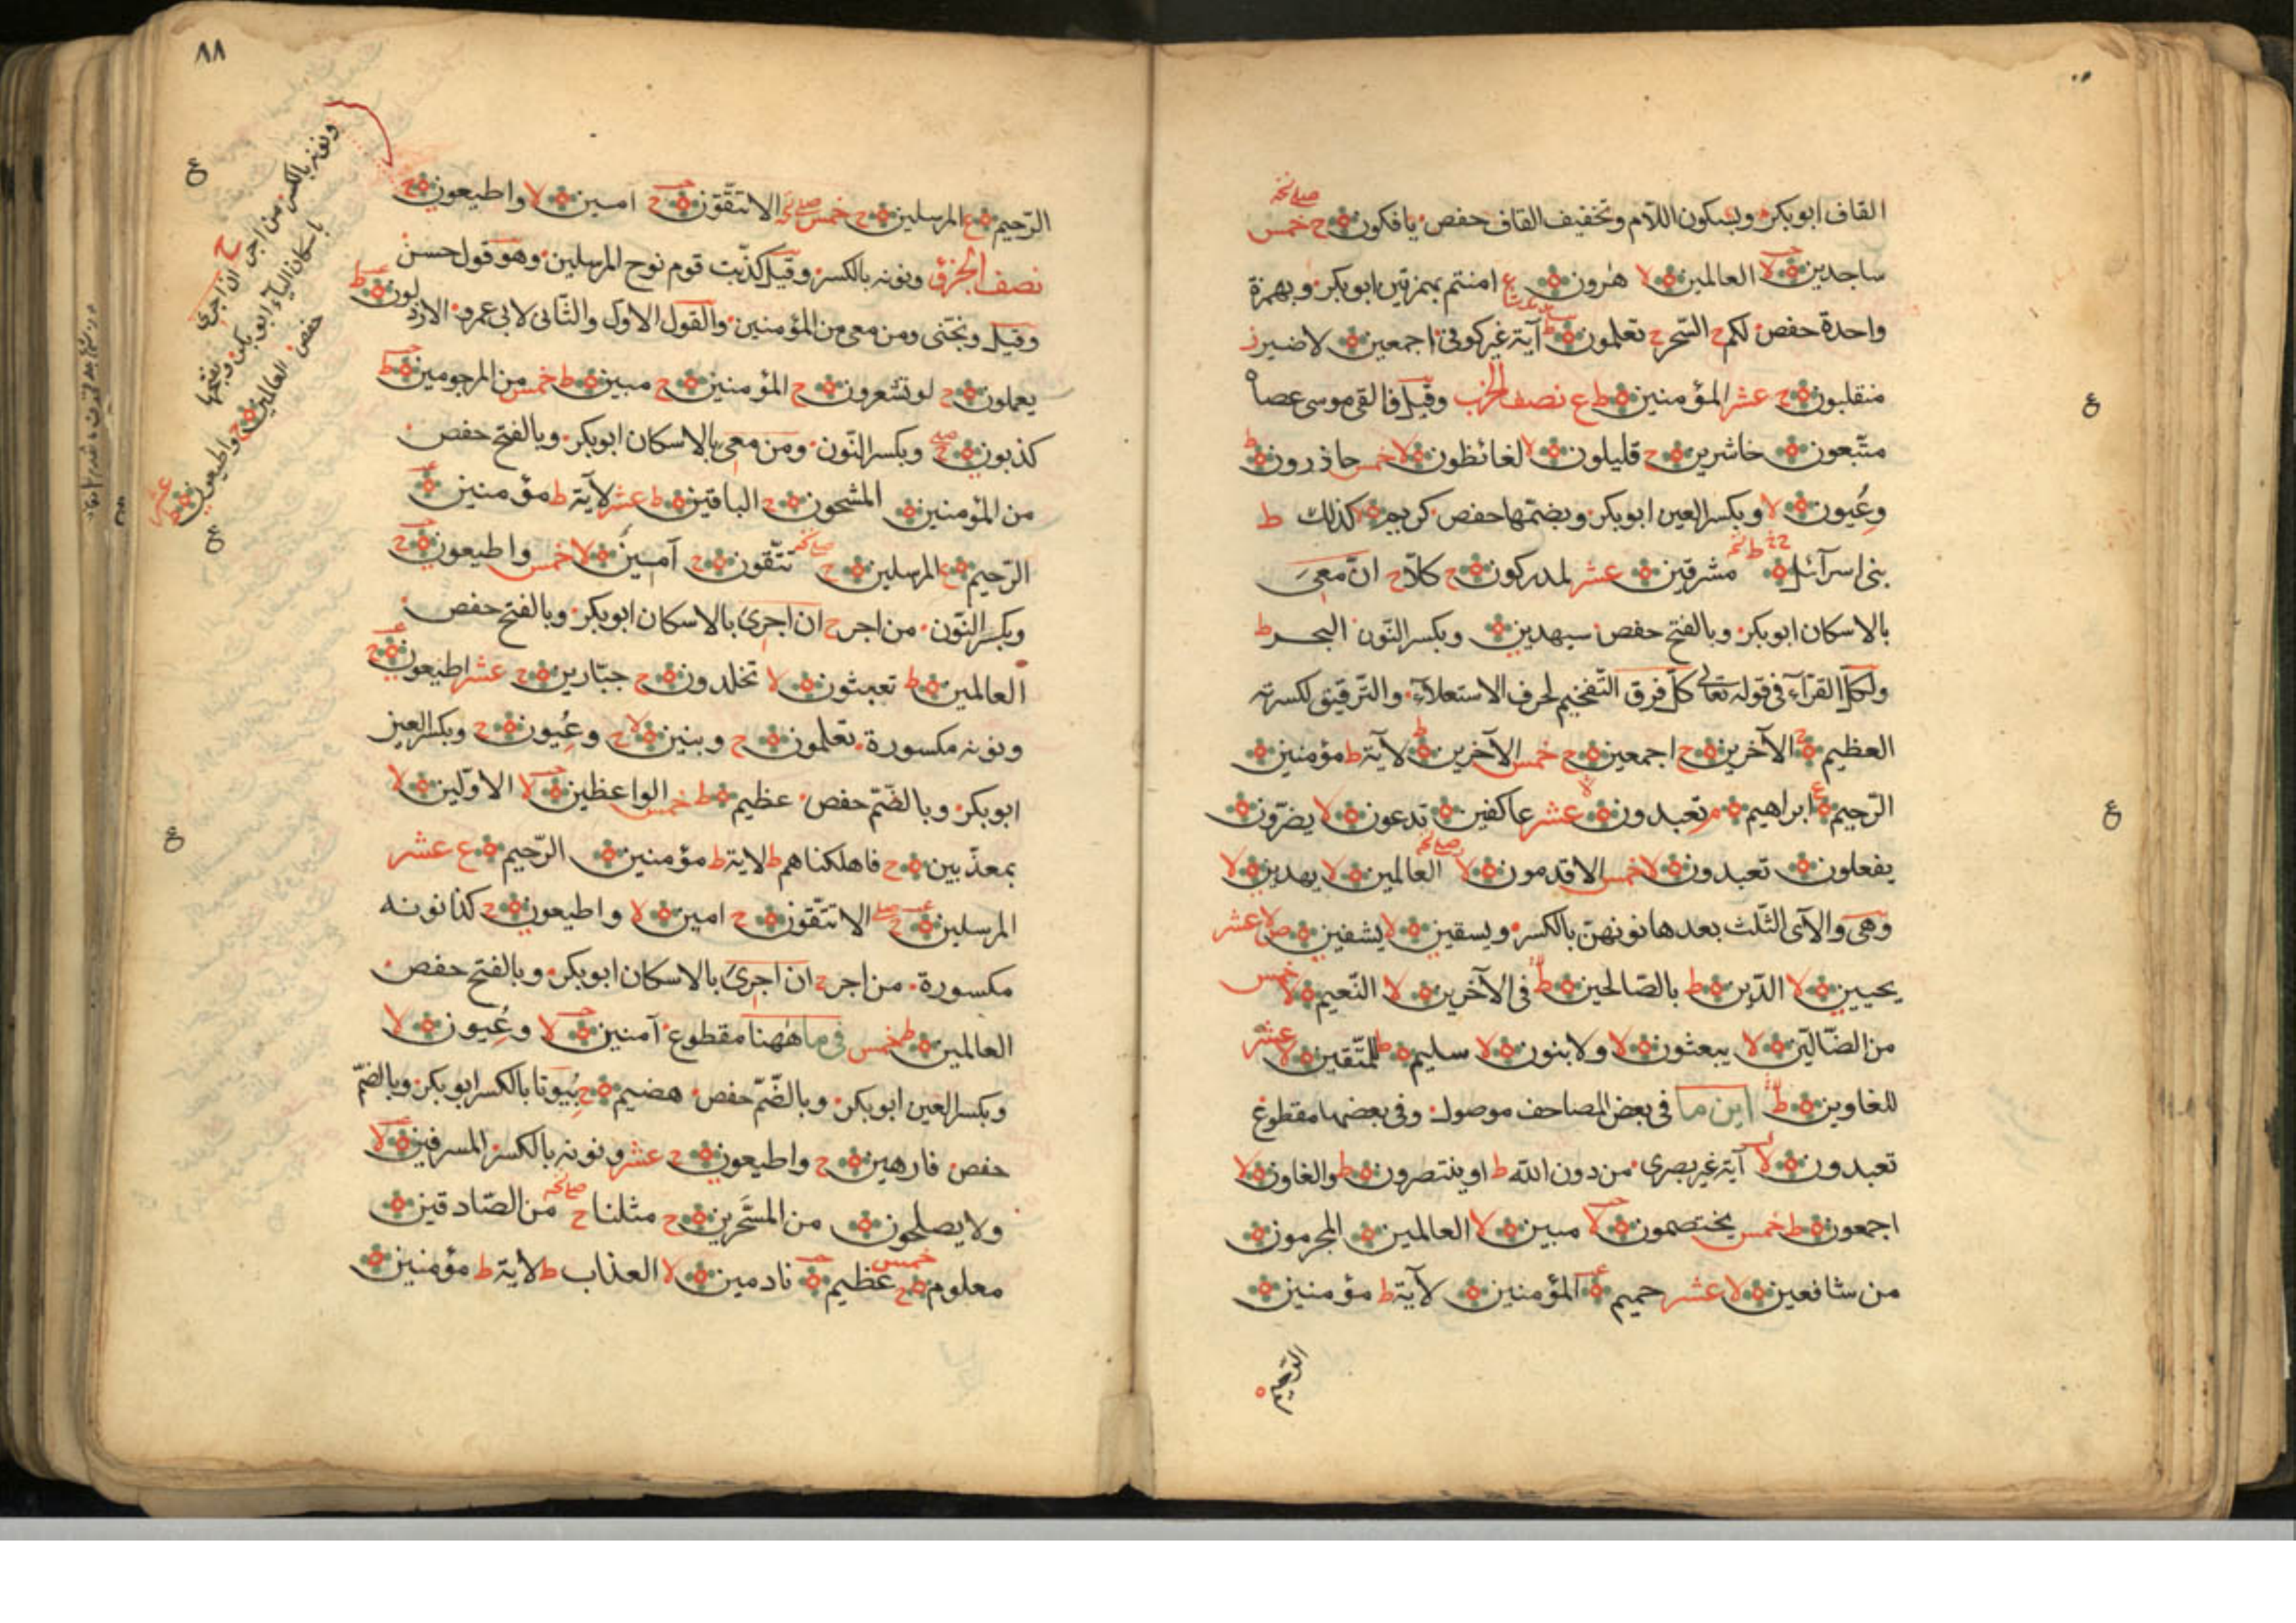 القاف ابوبكر وبسكون اللام وتخفيف القاف حفص يافكون ح خمس
صلے نخه
ساجدين لا العالمين لا هرون ع امنتم بهمزتين ابوبكر وبهمزة
واحدة حفص لكم ح السحر ح تعلمون ط آية غير كوفى اجمعين لاضير ز
منقلبون ح عشر المؤمنين ط ع نصف الحزب وقيل فالقى موسى عصاه
متبعون حاشرين ح قليلون لا لغائظون لا خمس حاذرون ط
وعيون لا وبكسر العين ابوبكر وبضمها حفص كريم كذلك ط
بنى اسرآئل ط مشرقين عشر لمدركون ح كلا ح ان معى
بالاسكان ابوبكر وبالفتح حفص سيهدين وبكسر النون البحر ط
ولكل القرآء فى قوله تعالى كل فرق التفخيم لحرف الاستعلآء والترقيق لكسرته
العظيم ج الآخرين ح اجمعين ح خمس الآخرين ط لآية ط مؤمنين
الرحيم ع ابراهيم م تعبدون عشر عاكفين تدعون لا يضرون
يفعلون تعبدون لا خمس الاقدمون لا العالمين لا يهدين لا
وهى والآى الثلث بعدها نونهن بالكسر ويسقين لا يشفين ص لا عشر
يحيين لا الدين ط بالصالحين ط فى الآخرين لا النعيم لا خمس
من الضالين لا يبعثون لا ولا بنون لا سليم ط للمتقين لا عشر
للغاوين ط اين ما فى بعض المصاحف موصول وفى بعضها مقطوع
تعبدون لا آية غير بصرى من دون الله ط او ينتصرون ط والغاون لا
اجمعون ط خمس يختصمون لا مبين لا العالمين المجرمون
من شافعين لا عشر حميم المؤمنين لآية ط مؤمنين
الرحيم
٨٨
الرحيم ع المرسلين ح خمس صلے نخه الا تتقون ح امين لا واطيعون ح
نصف الجزؤ ونونه بالكسر وقيل كذبت قوم نوح المرسلين وهو قول حسن
وقيل ونجنى ومن معى من المؤمنين والقول الاول والثانى لابى عمرو الارذلون ط
يعملون ح لو تشعرون ح المؤمنين ح مبين ط خمس من المرجومين ط
كذبون ح صلے وبكسر النون ومن معى بالاسكان ابوبكر وبالفتح حفص
من المؤمنين المشحون ح الباقين ط عشر لآية ط مؤمنين
الرحيم ع المرسلين ح صلے نخه تتقون ح آمين لا خمس واطيعون ح
وبكسر النون من اجر ح ان اجرى بالاسكان ابوبكر وبالفتح حفص
العالمين ط تعبثون لا تخلدون ح جبارين ح عشر اطيعون ح
ونونه مكسورة تعلمون ح وبنين لا ح وعيون ح وبكسر العين
ابوبكر وبالضم حفص عظيم ط خمس الواعظين لا الاولين لا
بمعذبين ح فاهلكناهم ط لاية ط مؤمنين الرحيم ع عشر
المرسلين ح صلے الا تتقون ح امين لا واطيعون ح كذا نونه
مكسورة من اجر ح ان اجرى بالاسكان ابوبكر وبالفتح حفص
العالمين ط خمس فى ما ههنا مقطوع آمنين لا وعيون لا
وبكسر العين ابوبكر وبالضم حفص هضيم ح بيوتا بالكسر ابوبكر وبالضم
حفص فارهين ح واطيعون ح عشر ونونه بالكسر المسرفين لا
ولا يصلحون من المسحرين ح مثلنا ح صلے نخه من الصادقين
معلوم ح خمس عظيم نادمين لا العذاب ط لآية ط مؤمنين
ونونه بالكسر من اجر ح ان اجرى
باسكان اليآء ابوبكر وبفتحها
حفص العالمين ح واطيعون عشر
ع
ع
ع
ع
ع